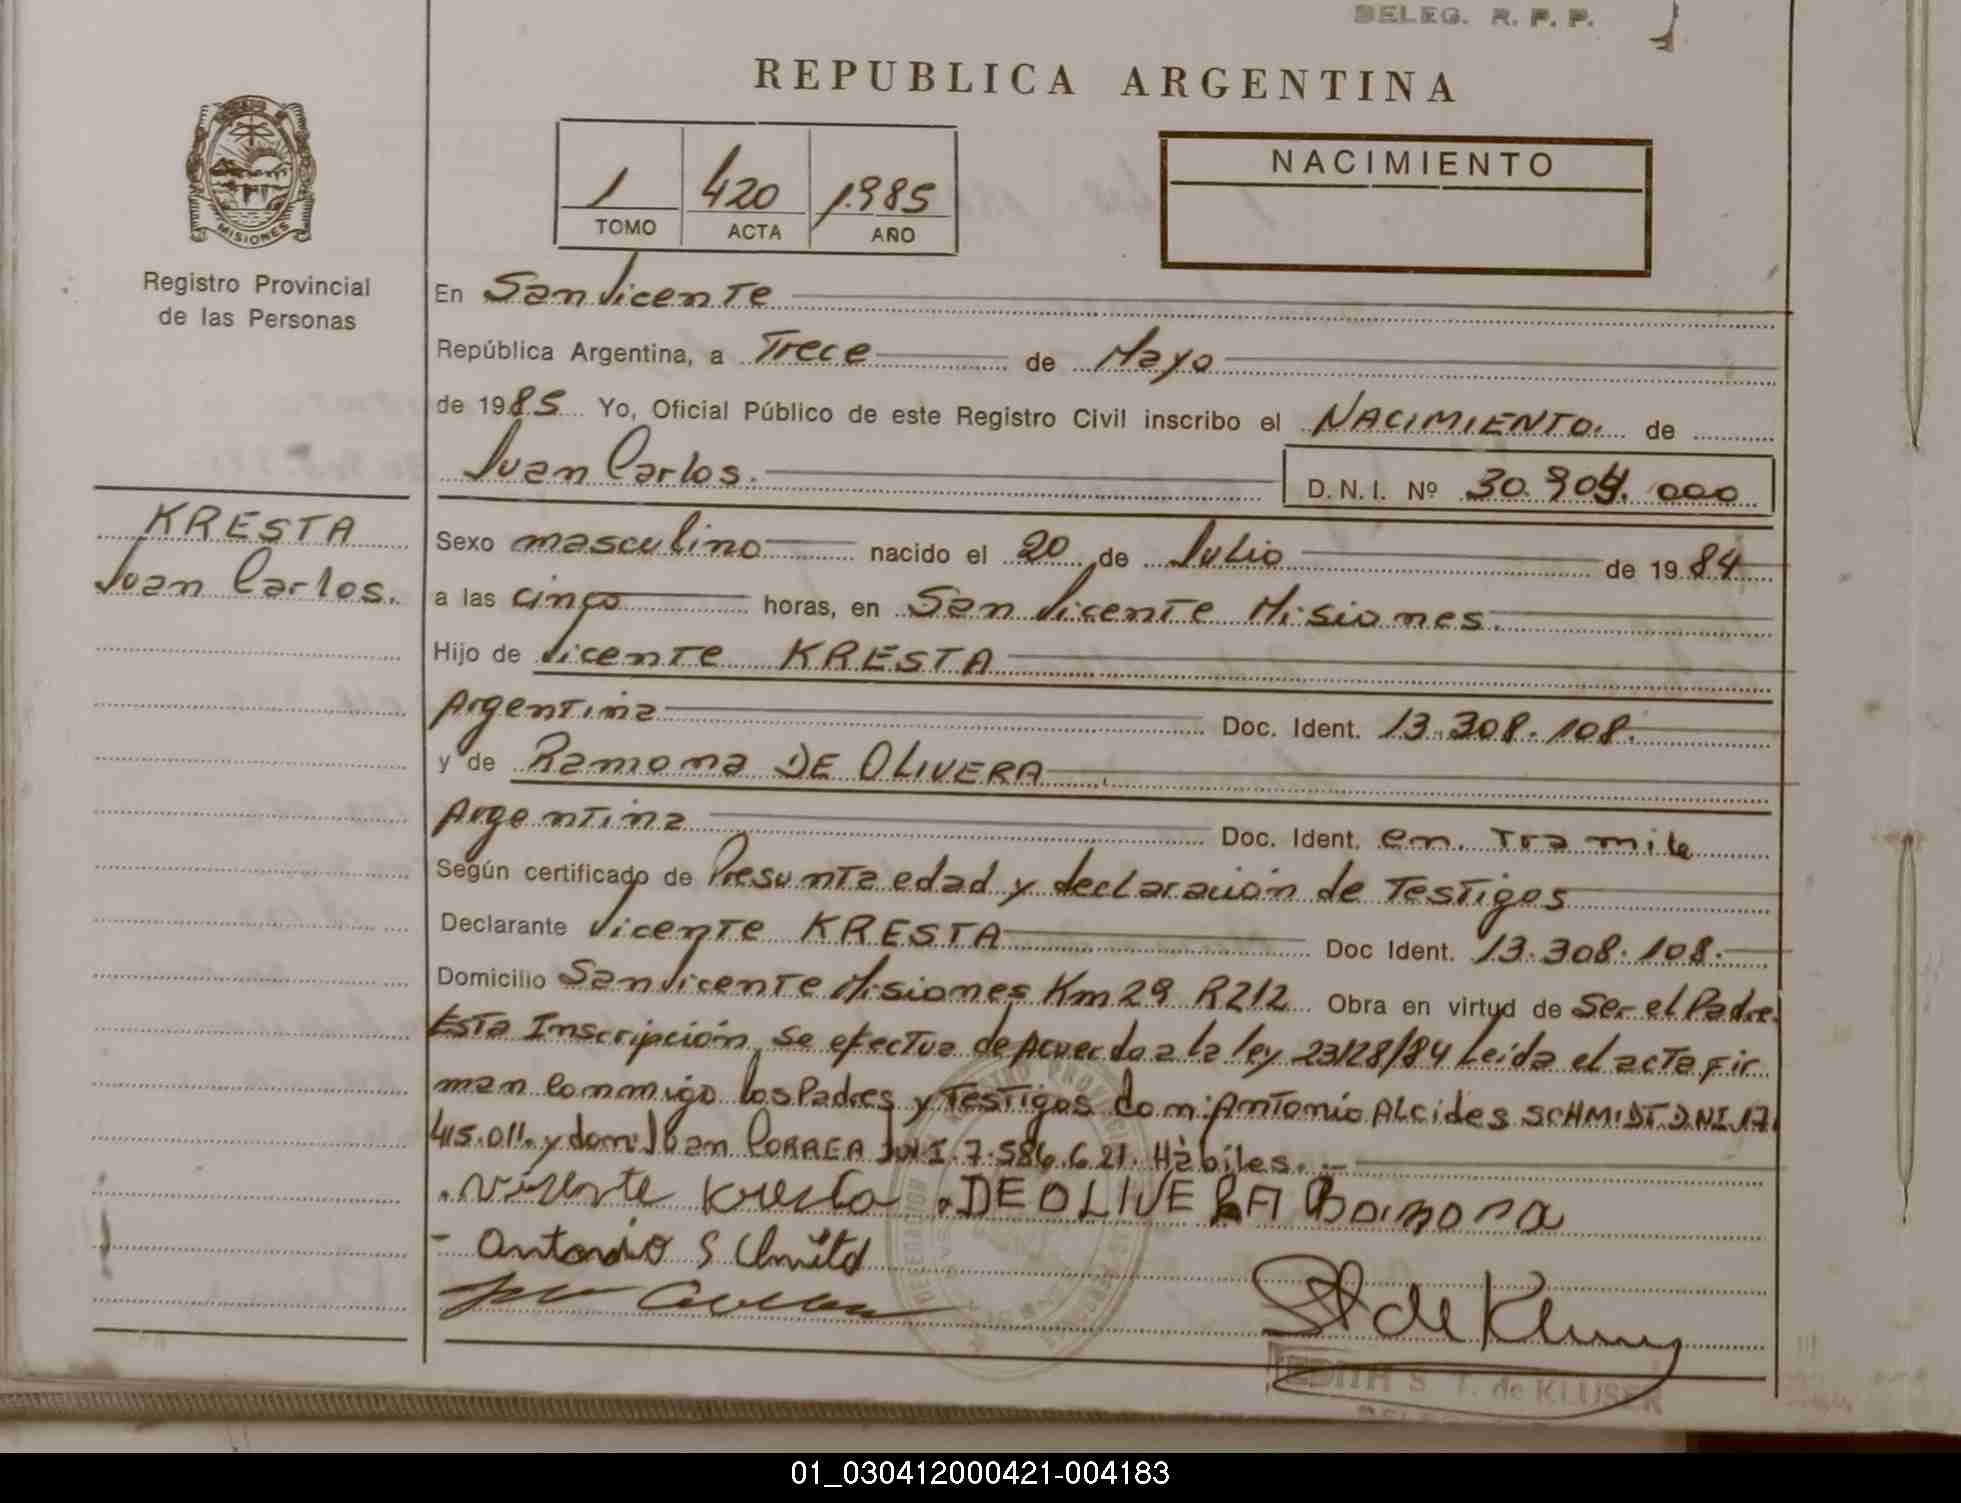 DELEG. R. P. P.
REPUBLICA ARGENTINA
MISIONES
Registro Provincial
de las Personas
1 420 1985
TOMO ACTA AÑO
NACIMIENTO
En San Vicente
República Argentina, a Trece de Mayo
de 1985 Yo, Oficial Público de este Registro Civil inscribo el NACIMIENTO. de
Juan Carlos.
D.N.I. Nº 30.904.000
KRESTA
Juan Carlos.
Sexo masculino nacido el 20 de Julio de 1984
a las cinco horas, en San Vicente Misiones.
Hijo de Vicente KRESTA
Argentina Doc. Ident. 13.308.108.
y de Ramona DE OLIVERA
Argentina Doc. Ident. en tramite
Según certificado de Presunta edad y declaración de Testigos
Declarante Vicente KRESTA Doc Ident. 13.308.108.
Domicilio San Vicente Misiones Km 29 R212 Obra en virtud de Ser el Padre.
Esta Inscripción se efectua de Acuerdo a la ley 23128/84 Leida el acta Fir
man conmigo los Padres y Testigos don: Antonio ALcides SCHMIDT D.NI.17.
415.011. y don: Juan CORREA DNI.7.584.621. Hàbiles.
Vicente Kresta DE OLIVERA Ramona
- Antonio Schmitd
EDITH S. T. de KLUSER
01_030412000421-004183